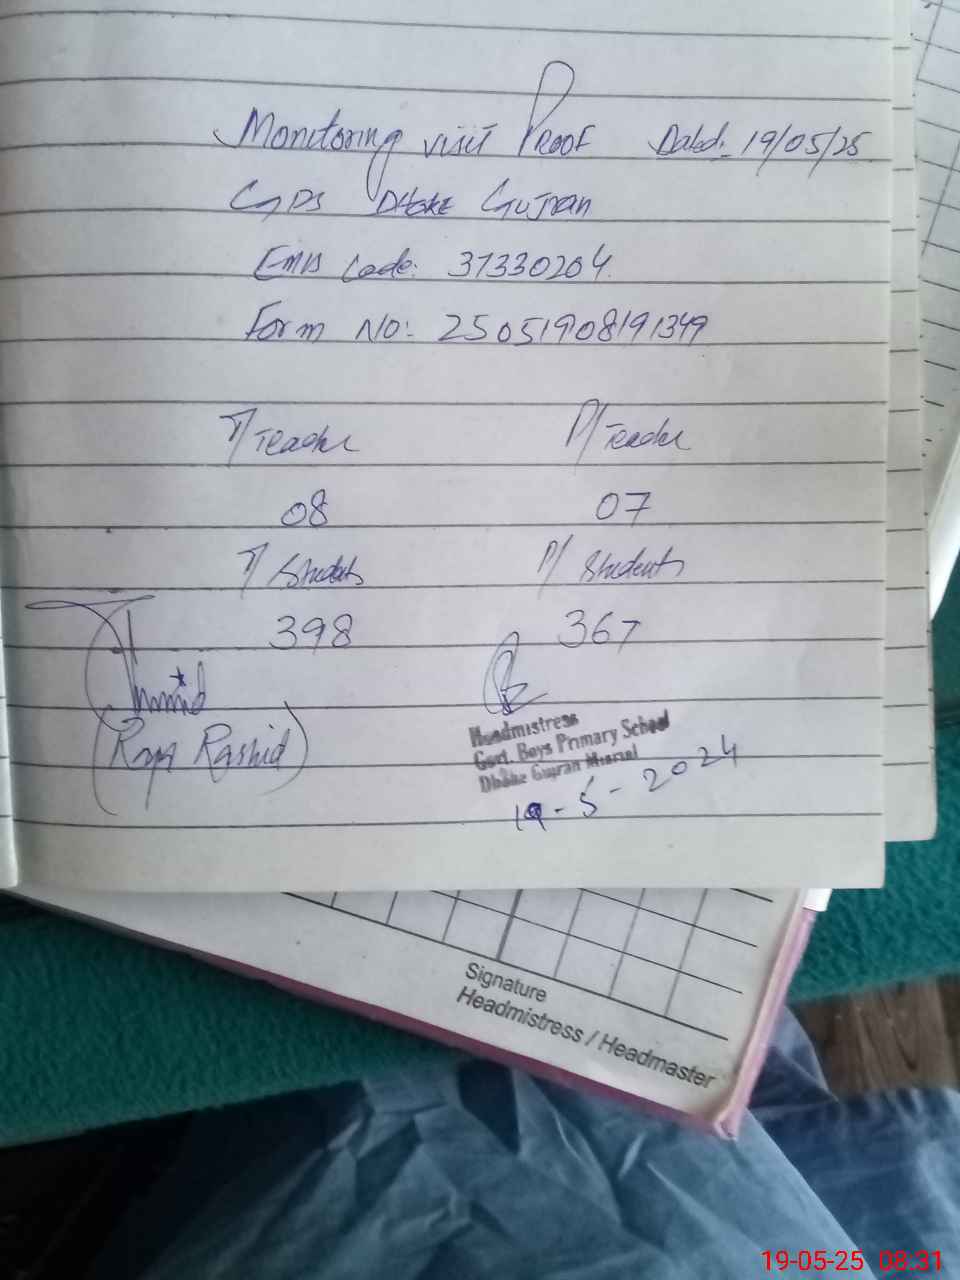 Monitoring visit Proof Dated:- 19/05/25
GPS Dhoke Gujran
Emis Code: 37330204
Form No:- 25051908191349
T/Teacher P/Teacher
08 07
T/Students P/Students
398 367
(Raja Rashid)
Headmistress
Govt. Boys Primary School
Dhoke Gujran
19-5-2024
Signature
Headmistress / Headmaster
19-05-25 08:31